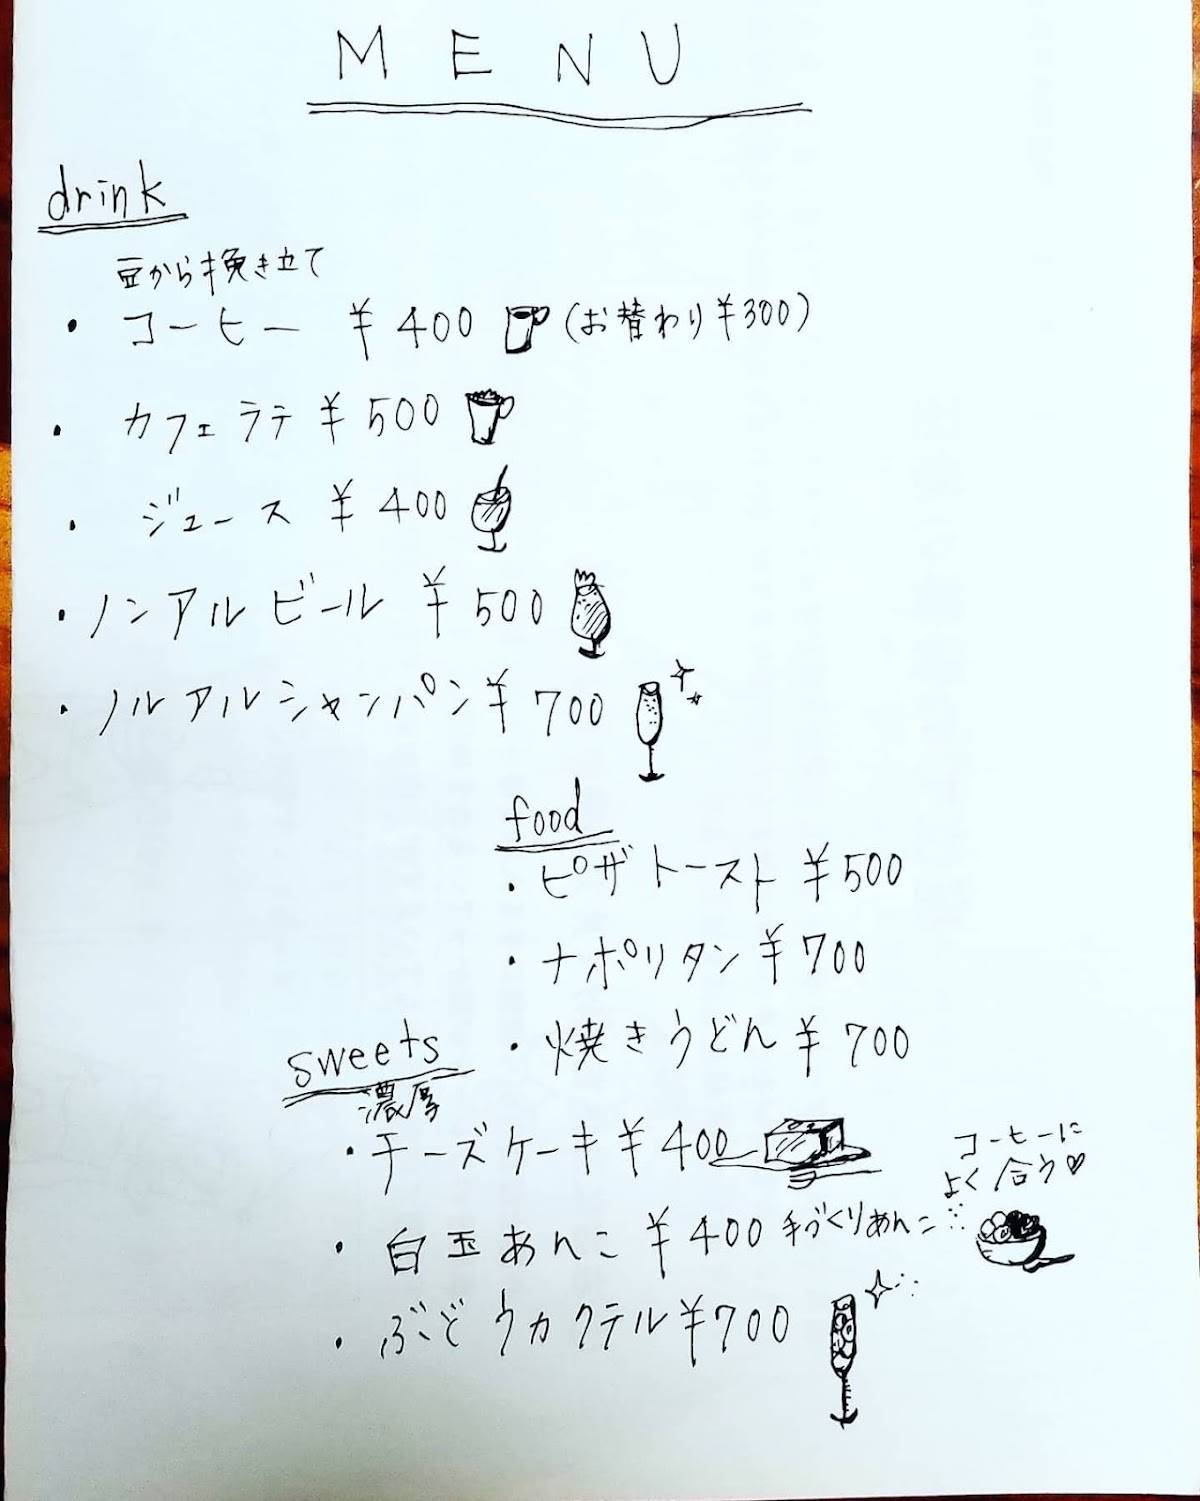 MENU
drink
豆から挽き立て
・コーヒー ¥400 (お替わり¥300)
・カフェラテ ¥500
・ジュース ¥400
・ノンアルビール ¥500
・ノルアルシャンパン ¥700
food
・ピザトースト ¥500
・ナポリタン ¥700
・焼きうどん ¥700
sweets
濃厚
・チーズケーキ ¥400
コーヒーに
よく合う♡
・白玉あんこ ¥400 手づくりあんこ
・ぶどウカクテル ¥700